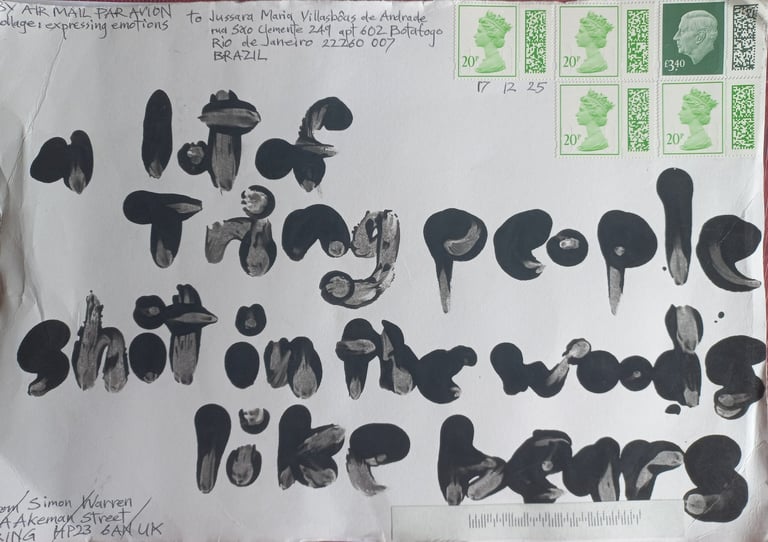 BY AIR MAIL PAR AVION
collage: expressing emotions
to Jussara Maria Villasbôas de Andrade
rua São Clemente 249 apt 602 Botafogo
Rio de Janeiro 22260 007
BRAZIL
20P
20P
£3.40
17 12 25
20P
20P
a lot of
Tring people
shit in the woods
like bears
from Simon Warren
Akeman Street
TRING HP23 6AN UK